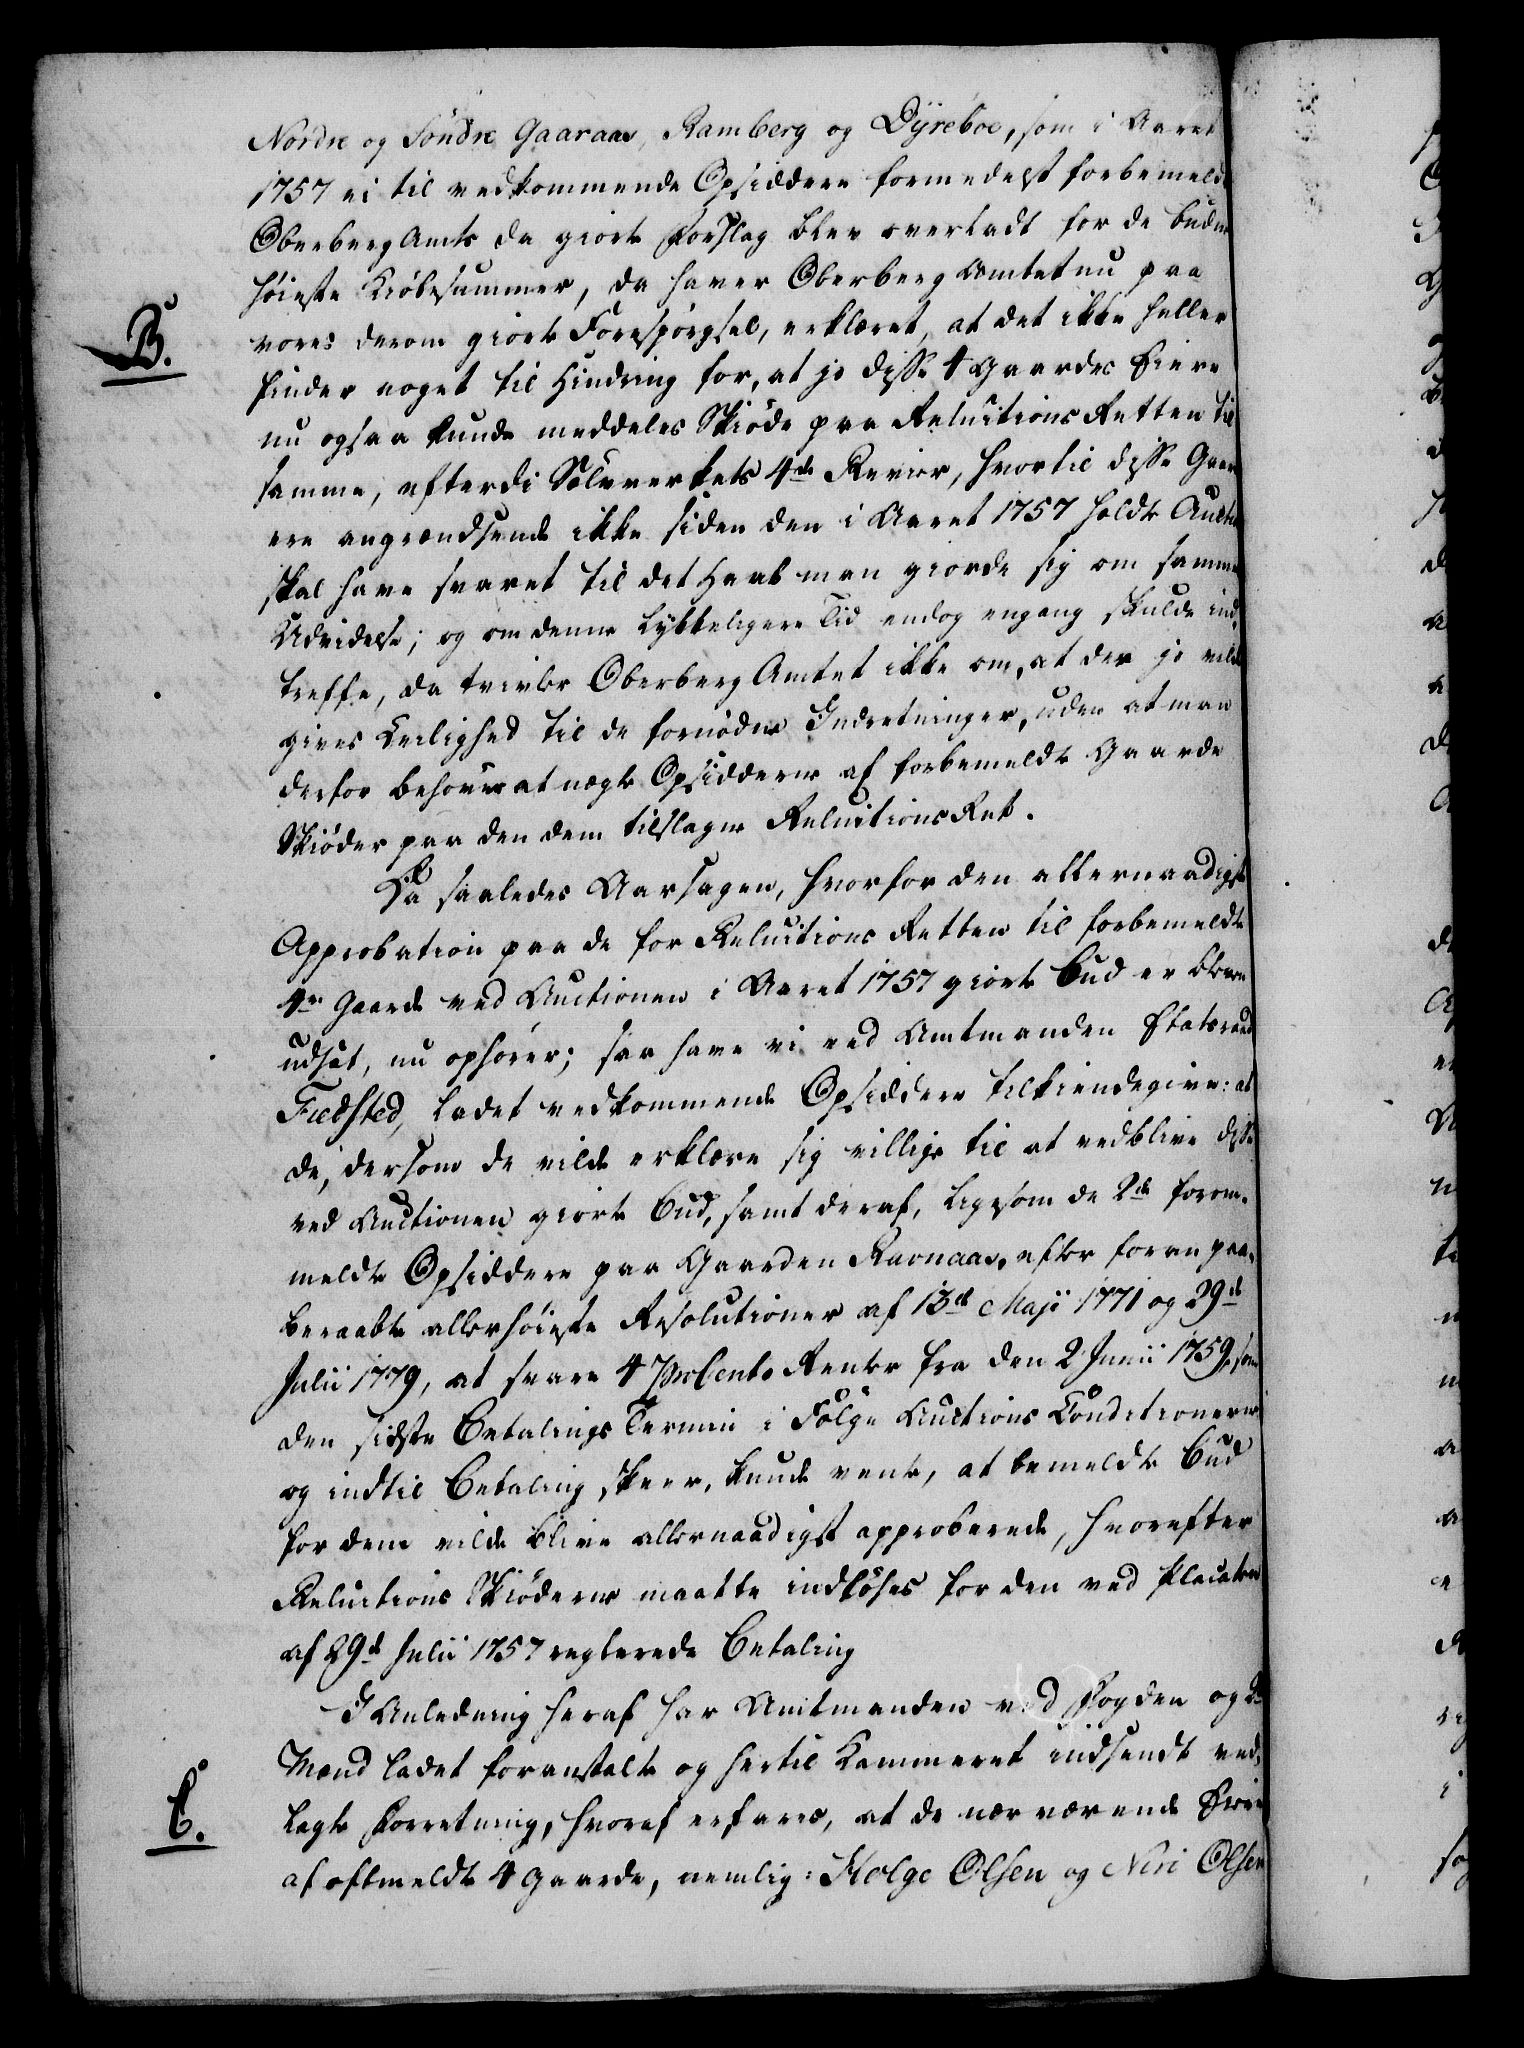 Nordre og Söndre Gaaraas, Ramberg og Dÿreboe, som i Aaret
1757 ei til vedkommende Opsiddere formedelst forbemeldte
OberbergAmts da giorte Forslag blev overladt for de budne
höieste Kiöbesummer, da haver OberbergAmtet nu paa
B.
vores derom giorte Forespörgsel, erklæret, at det ikke heller
finder noget til Hindring for, at jo disse 4 Gaardes Eiere
nu ogsaa kunde meddeles Skiöde paa ReluitionsRetten til
samme, efterdi Sölvverkets 4de Revier, hvortil disse Gaar
ere angrændsende ikke siden den i Aaret 1757 holdte Auction
skal have svaret til det Haab man giorde sig om sammes
Udvidelse; og om denne lykkeligere Tid endog engang skulde ind,
treffe, da tvivler OberbergAmtet ikke om, at der jo vilde
gives Leilighed til de fornödne Indretninger, uden at man
derfor behöver at nægte Opsidderne af forbemeldte Gaarde
Skiöder paa den dem tilslagne ReluitionsRet.
Da saaledes Aarsagen, hvorfor den allernaadigste
Approbation paa de for ReluitionsRetten til forbemeldte
4re Gaarde ved Auctionen i Aaret 1757 giorte Bud er bleven
udsat, nu ophörer; saa have vi ved Amtmanden Etatsraad
Fiedsted, ladet vedkommende Opsiddere tilkiendegive: at
de, dersom de vilde erklære sig villige til at vedblive disse
ved Auctionen giorte Bud, samt deraf, ligesom de 2de forom-
meldte Opsiddere paa Gaarden Ravnaas, efter foran paa-
beraabte allerhöieste Resolutioner af 13de Maji 1771 og 29de
Julii 1779, at svare 4 ProCento Renter fra den 2 Junii 1759, som
den sidste Betalings Termin i Fölge Auctions Conditionerne
og indtil Betaling skeer, kunde vente, at bemeldte Bud
for dem vilde blive allernaadigst approberede, hvorefter
Reluitions Skiöderne maatte indlöses for den ved Placaten
af 29de Julii 1757 reglerede Betaling
I Anledning heraf har Amtmanden ved Fogden og 2de
Mænd ladet foranstalte og hertil Kammeret indsendt ved-
C.
lagte Forretning, hvoraf erfares, at de nærværende Eiere
af oftmeldte 4 Gaarde, nemlig: Helge Olsen og Niri Olsen